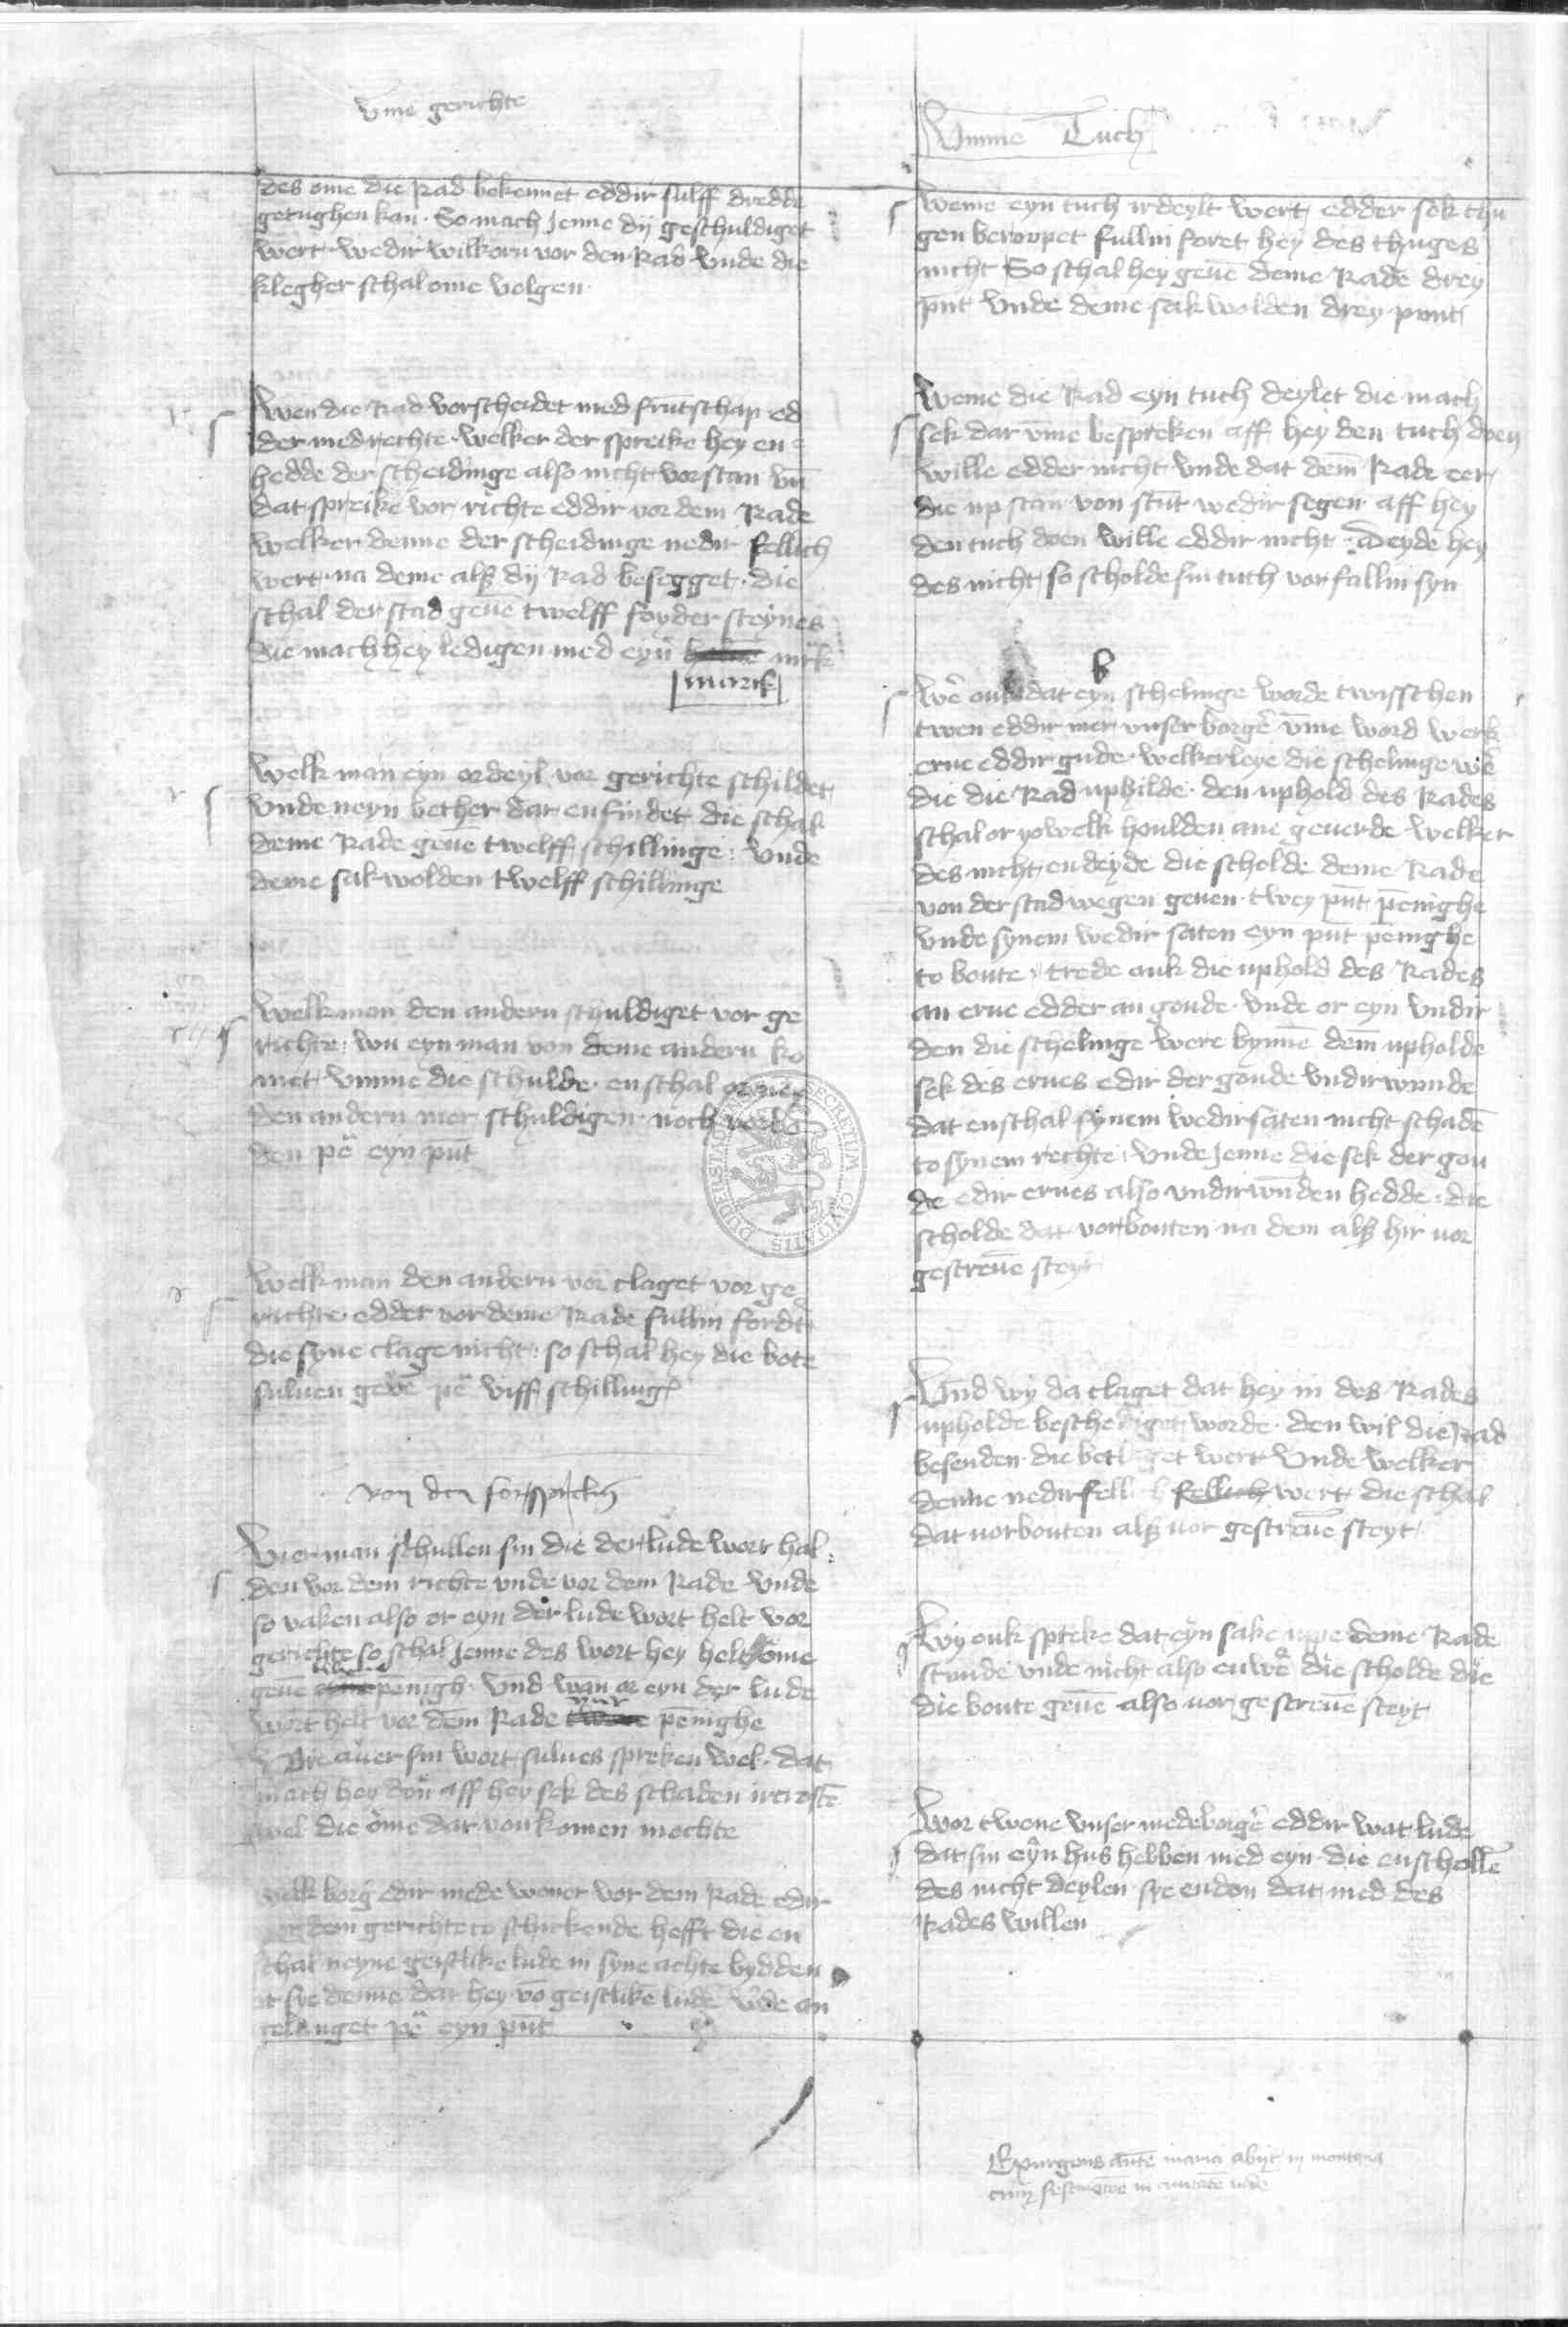 vm̄e gerichte
des ome die Rad bekennet eddir sulff dredde
getughen kan. So mach jenne dÿ geschuldiget
wert. wedir wilkorn vor den Rad vnde die
klegher schal ome volgen.
Wen die Rad vorscheidet med frūtschap ed
der med rechte. welker der spreike hey en
hedde der scheidinge also nicht vorstan vn̄
dat spreike vor richte eddir vor dem Rade
welker denne der scheidinge nedir fellich
wert. na deme alß dÿ Rad besegget. die
schal der stad geuē twelff foyder steynes
die mach hey ledigen med eyn̄ mrk
marck
Welk man eyn ordeyl vor gerichte schildet
vnde neyn bether dar en findet die schal
deme Rade geuē twelff schillinge: vnde
deme sakwolden twelff schillinge
Welk man den andern schuldiget vor ge
richte: wu eyn man von deme andern ko
met. vmme die schulde. en schal
den andern mer schuldigen noch
den pē eyn pūt
Welk man den andern vor claget vor ge
richte. edder vor deme Rade fullin fordt
die syne clage nicht: so schal hey die bote
suluen geuē pē viff schilling
von den forsprachen
Vier man schullen sin die der lude wort hal
den vor dem richte vnde vor dem Rade vnde
so vaken also or eyn der lude wort helt vor
gerichte so schal jenne des wort hey helt ome
geue pēnigh. vnd wan or eyn der lude
wort helt vor dem Rade vier pēnighe
Wie auer sin wort sulues spreken wel. dat
mach hey don aff hey sek des schaden
wel die ome dar von komen mochte
welk borg̃ edir mede woner vor dem Rade edir
vor dem gerichte to schickende hefft die en
schal neyne geistlike lude in syne achte bydden
sye denne dat hey vō geistlikē ludē an
gelanget pē eyn pūt
Vmme Tuch
Weme eyn tuch irdeylt wert, edder sek thu
gen beroopet fullin foret hey des thuges
nicht So schal hey geuē deme Rade drey
pūt vnde deme sakwolden drey punt
Weme die Rad eyn tuch deylet die mach
sek dar vm̄e bespreken aff hey den tuch doen
wille edder nicht vnde dat dem̄ Rade eer
die up stan von stūt wedir segen aff hey
den tuch doen wille eddir nicht. Deyde hey
des nicht, so scholde sin tuch vor fallin syn
Wē ouk dat eyn schelinge worde twisschen
twen eddir mer vnser borgē vm̄e word werk
erue eddir gude. welkerleye die schelinge wē
die die Rad uphilde. den uphold des Rades
schal or yowelk houlden ane geuerde welker
des nicht en deyde die scholde deme Rade
von der stad wegen geuen twey pūt pēnighe
vnde synem wedir saten eyn pūt pēnighe
to boute. trede ouk die uphold des Rades
an erue edder an goude. vnde or eyn vndir
den die schelinge were bynnē dem̄ upholde
sek des erues edir der goude vndir wunde
dat en schal synem wedirsaten nicht schadē
to synem rechte. vnde jenne die sek der gou
de edir erues also vndirwūden hedde. die
scholde dat vorbouten na dem alß hir vor
gescreuē steyt
Vnd wÿ da claget dat hey in des Rades
upholde beschediget worde. den wil die Rad
besenden. die beclaget wert vnde welker
denne nedirfellich fellich wert die schal
dat uorbouten alß uor gescreuē steyt
Wy ouk spreke dat eyn sake deme Rade
stunde vnde nicht also en wē die scholde die
die boute geuē also uor gescreuē steyt
Wor twene vnser medeborgē eddir wat lude
dat sin eyn hus hebben med eyn. die en schollē
des nicht deylen sye en don dat med des
Rades willen
Exurgens autē maria abijt in montana
cum festinatōe in ciuitatē iude
SECRETUM CIVITATIS